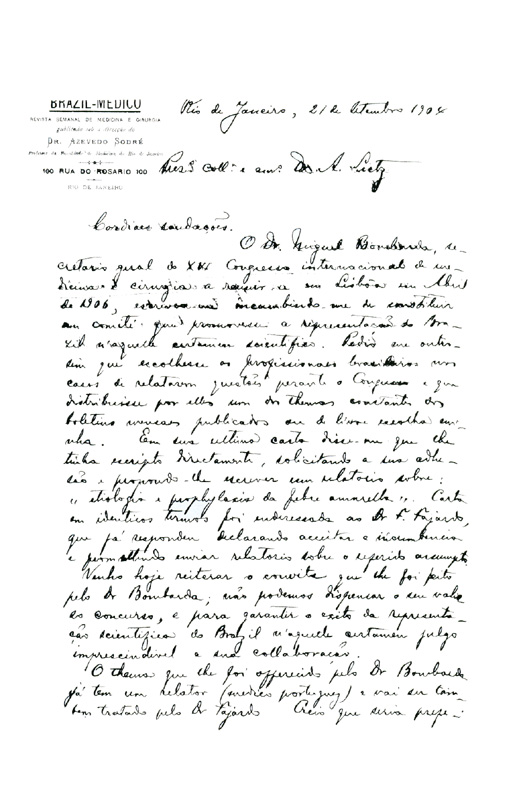 BRAZIL-MEDICO
REVISTA SEMANAL DE MEDICINA E CIRURGIA
publicada sob a direcção do
DR. AZEVEDO SODRÉ
Professor da Faculdade de Medicina do Rio de Janeiro
100 RUA DO ROSARIO 100
RIO DE JANEIRO
Rio de Janeiro, 21 de Setembro 1904
Prez.º Coll.ª e am.º Dr A. Lutz
Cordiaes saudações.
O Dr. Miguel Bombarda, se-
cretario geral do XV Congresso internacional de me-
dicina e cirurgia a reunir-se em Lisbôa em Abril
de 1906, escreveu-me incumbindo-me de constituir
um comité que promovesse a representação do Bra-
zil n'aquelle certamen scientifico. Pediu-me outro-
sim que escolhesse os profissionaes brasileiros nos
casos de relatarem questões perante o Congresso e que
distribuisse por elles um dos themas constantes dos
boletins mensaes publicados ou de livre escolha mi-
nha. Em sua ultima carta disse-me que lhe
tinha escripto directamente, solicitando a sua adhe-
são e propondo-lhe escrever um relatorio sobre:
"etiologia e prophylaxia da febre amarella". Carta
em identicos termos foi enderessada ao Dr F. Fajardo,
que já respondeu declarando acceitar a incumbencia
e promettendo enviar relatorio sobre o referido assumpto.
Venho hoje reiterar o convite que lhe foi feito
pelo Dr Bombarda; não podemos dispensar o seu valio-
so concurso, e para garantir o exito da represent-
ação scientifica do Brazil n'aquelle certamen julgo
imprescindivel a sua collaboração.
O thema que lhe foi offerecido pelo Dr Bombarda
já tem um relator (medico portuguez) e vai ser tam-
bem tratado pelo Dr Fajardo Creio que seria prefe-